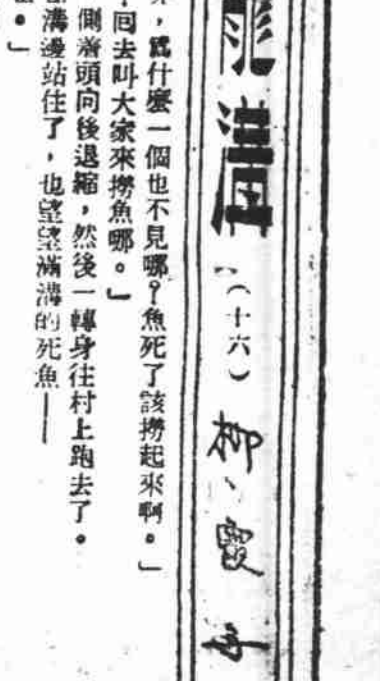 溝
(十六)
柳
,爲什麼一個也不見哪?魚死了該撈起來啊。」
回去叫大家來撈魚哪。」
側着頭向後退縮,然後一轉身往村上跑去了。
溝邊站住了,也望望滿溝的死魚——
。」